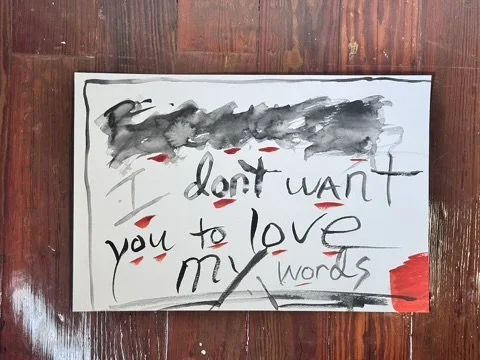 I don't wANt
you to love
my words